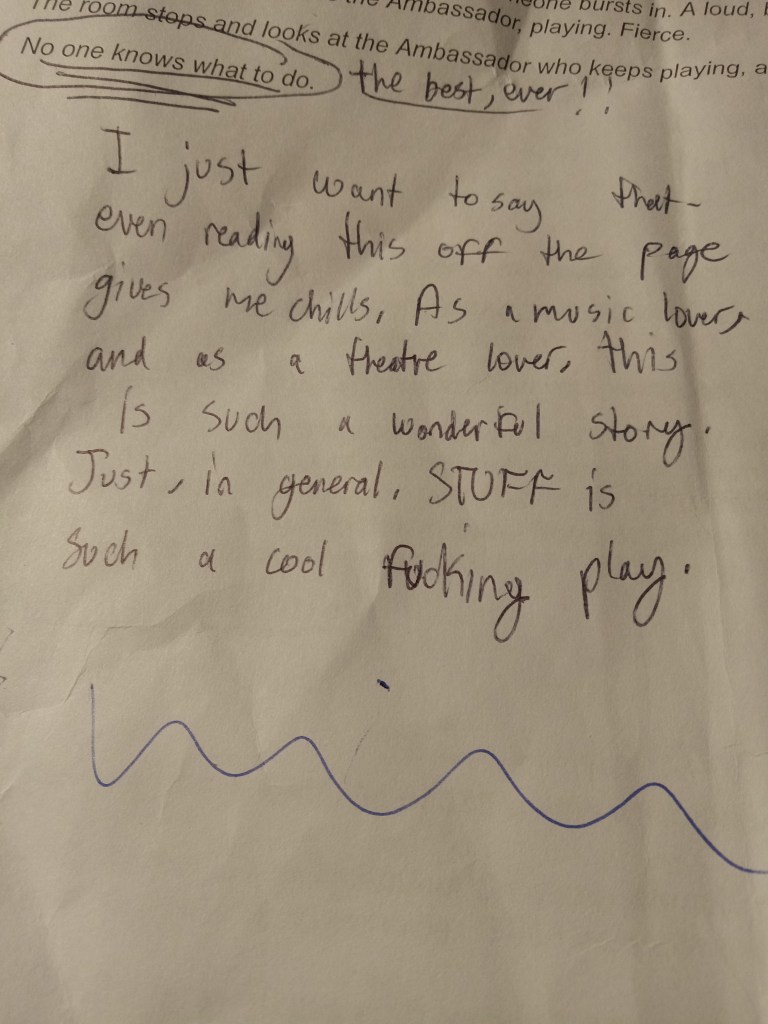 the Ambassador, playing. Fierce.
bursts in. A loud,
The room stops and looks at the Ambassador who keeps playing, a
No one knows what to do. the best, ever!!
I just want to say that-
even reading this off the page
gives me chills. As a music lover,
and as a theatre lover, this
is such a wonderful story.
Just, in general, STUFF is
such a cool fucking play.